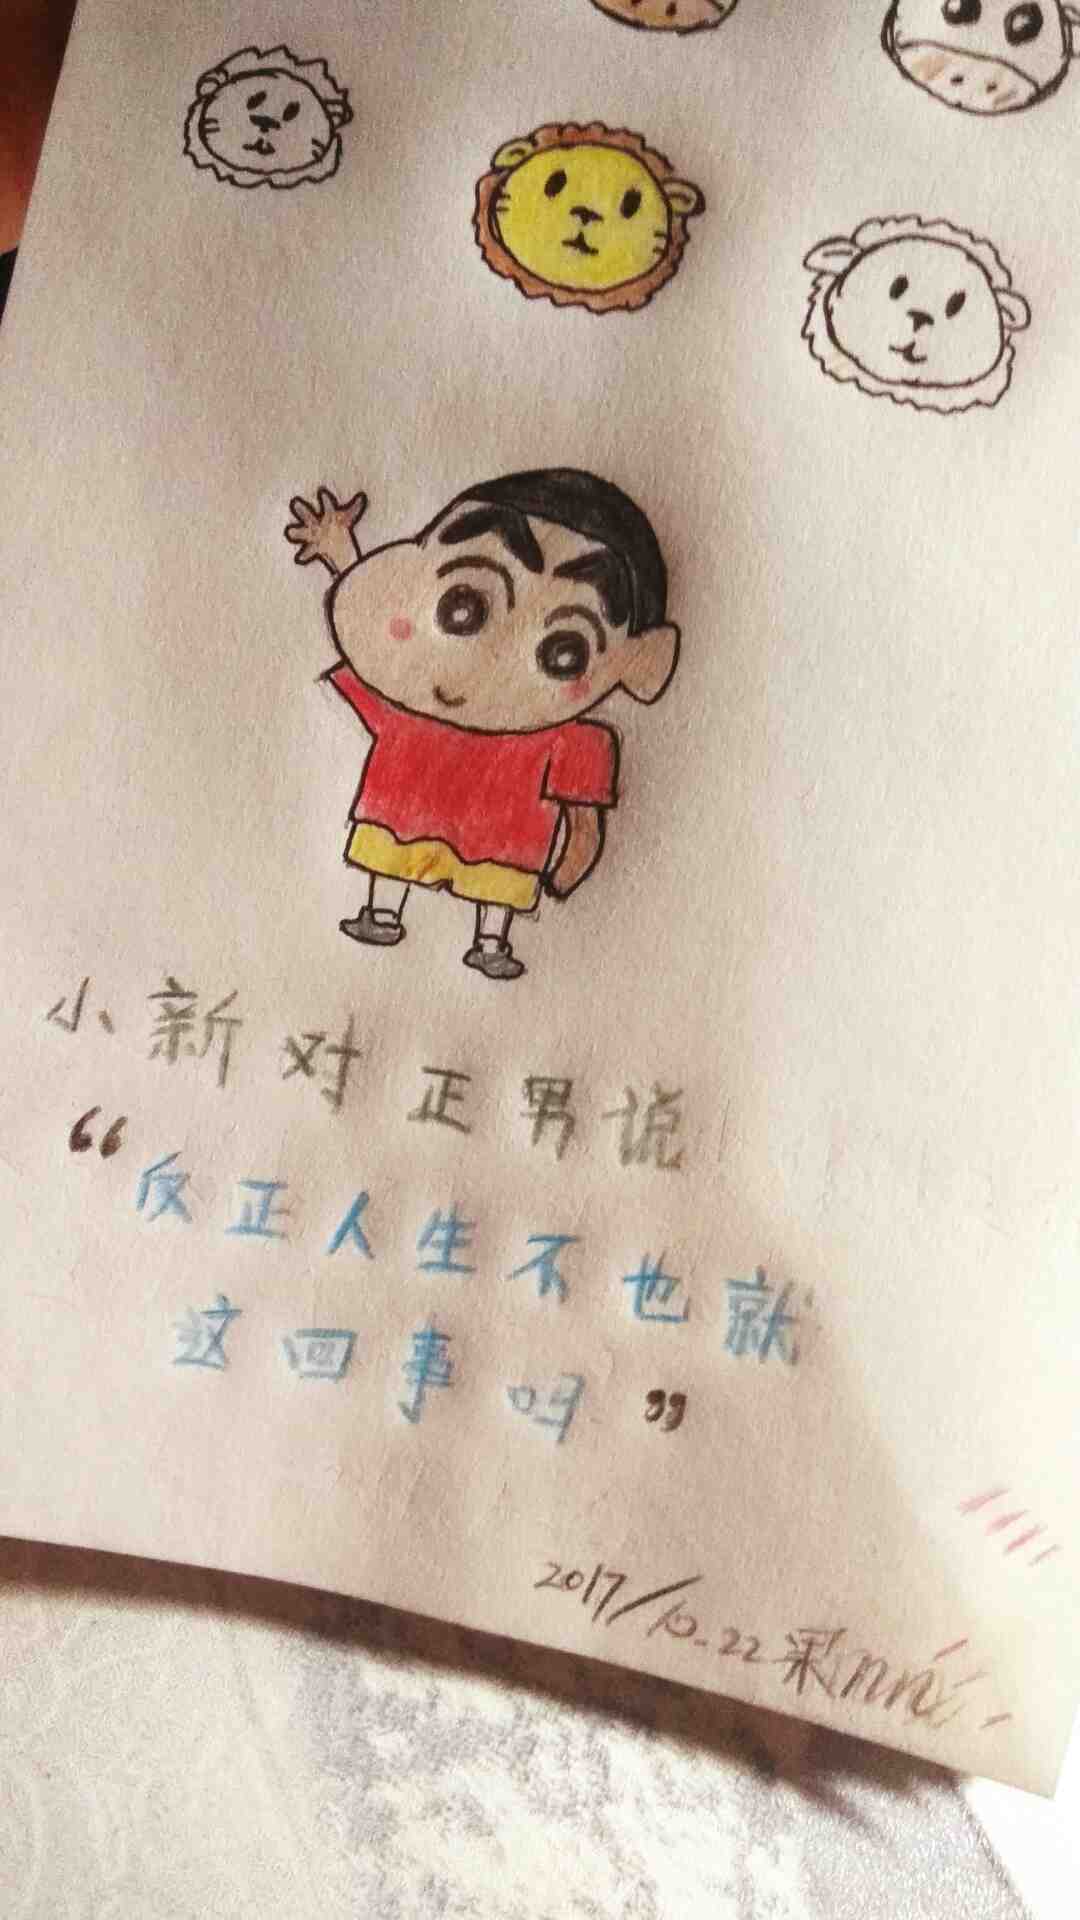 小新对正男说
“反正人生不也就
这回事吗”
2017/10.22